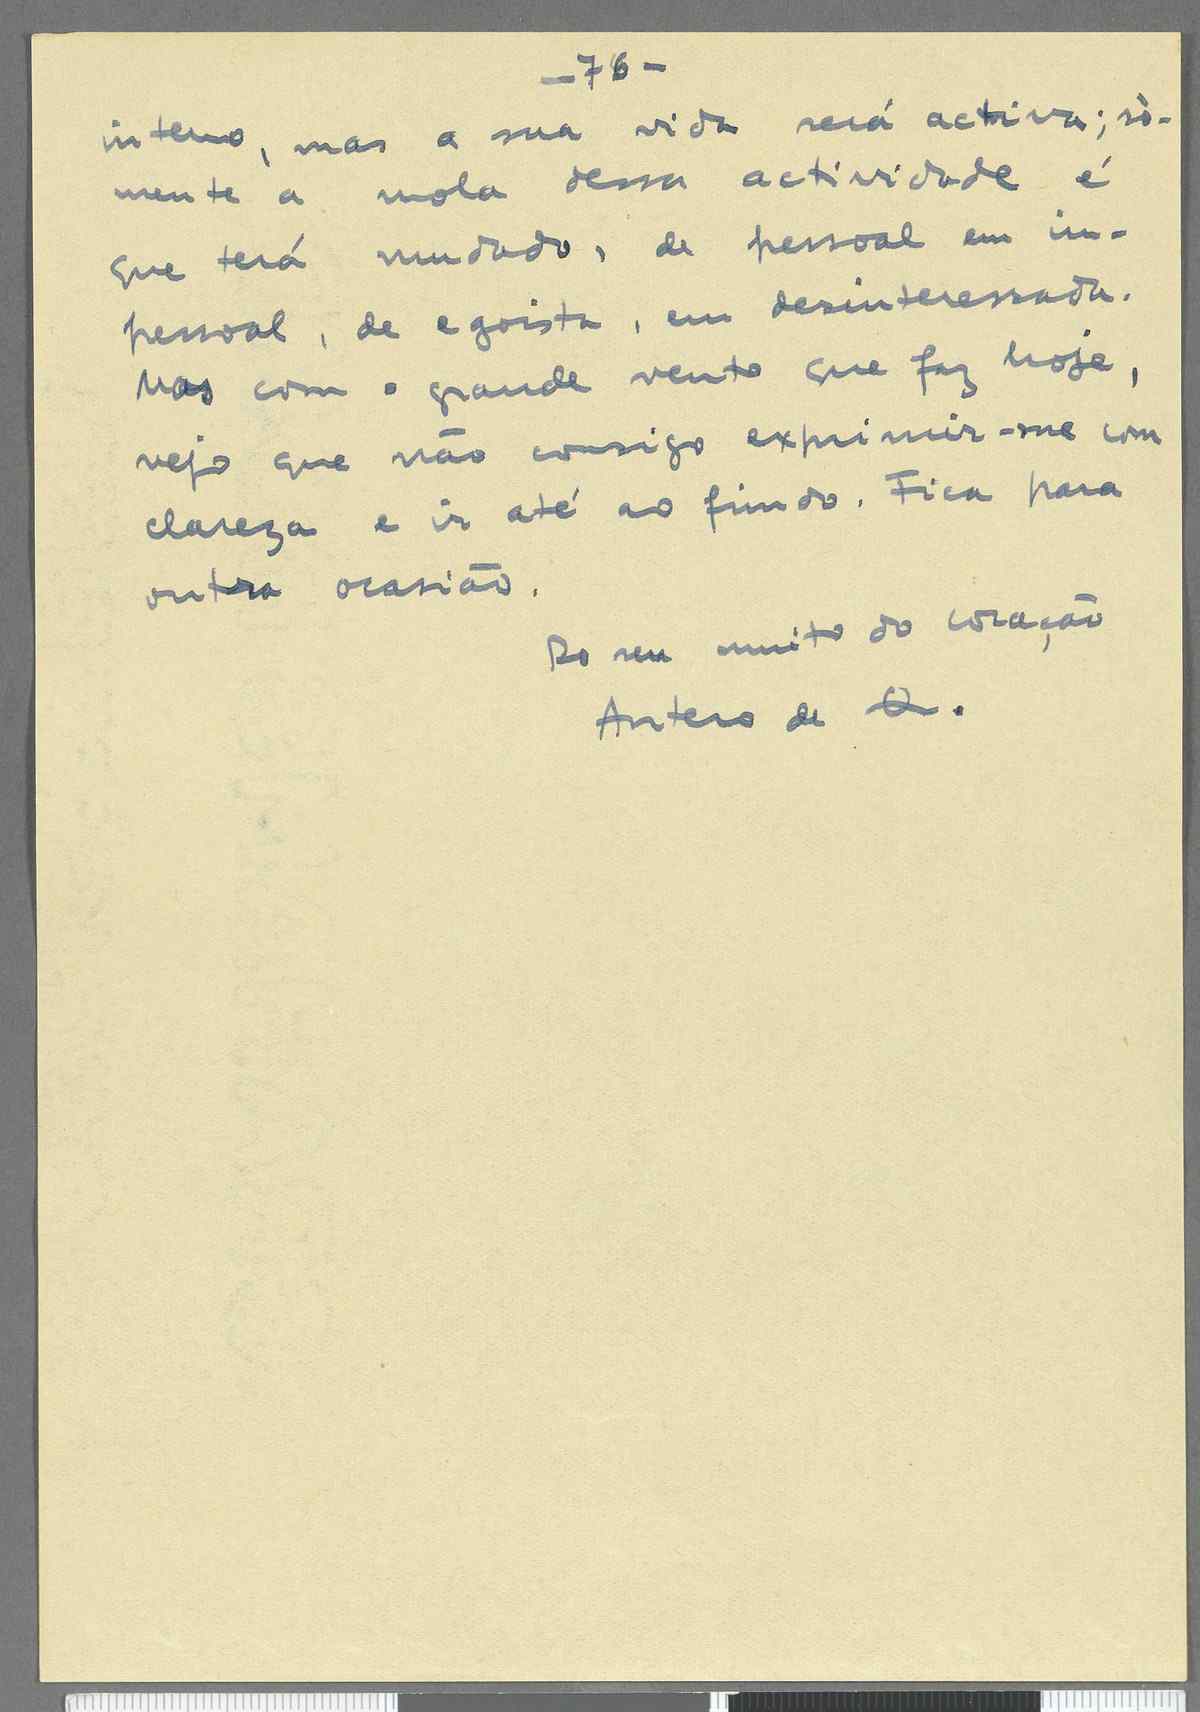 -76-
interno, mas a sua vida será activa; sò-
mente a mola dessa actividade é
que terá mudado, de pessoal em im-
pessoal, de egoista, em desinteressada.
Mas com o grande vento que faz hoje,
vejo que não consigo exprimir-me com
clareza e ir até ao fundo. Fica para
outra ocasião.
Do seu muito do coração
Antero de Q.